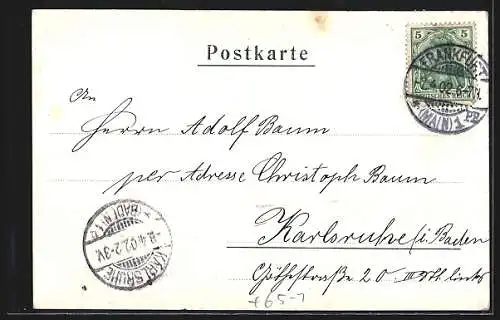 Postkarte
5 5
FRANKFURT
(MAIN) 1
An
Herrn Adolf Baum
per Adresse Christoph Baum
Karlsruhe i. Baden
Göthestraße 20 III Stk links
KARLSRUHE
-8.4.02.2-3V.
(BADEN)
+65-7